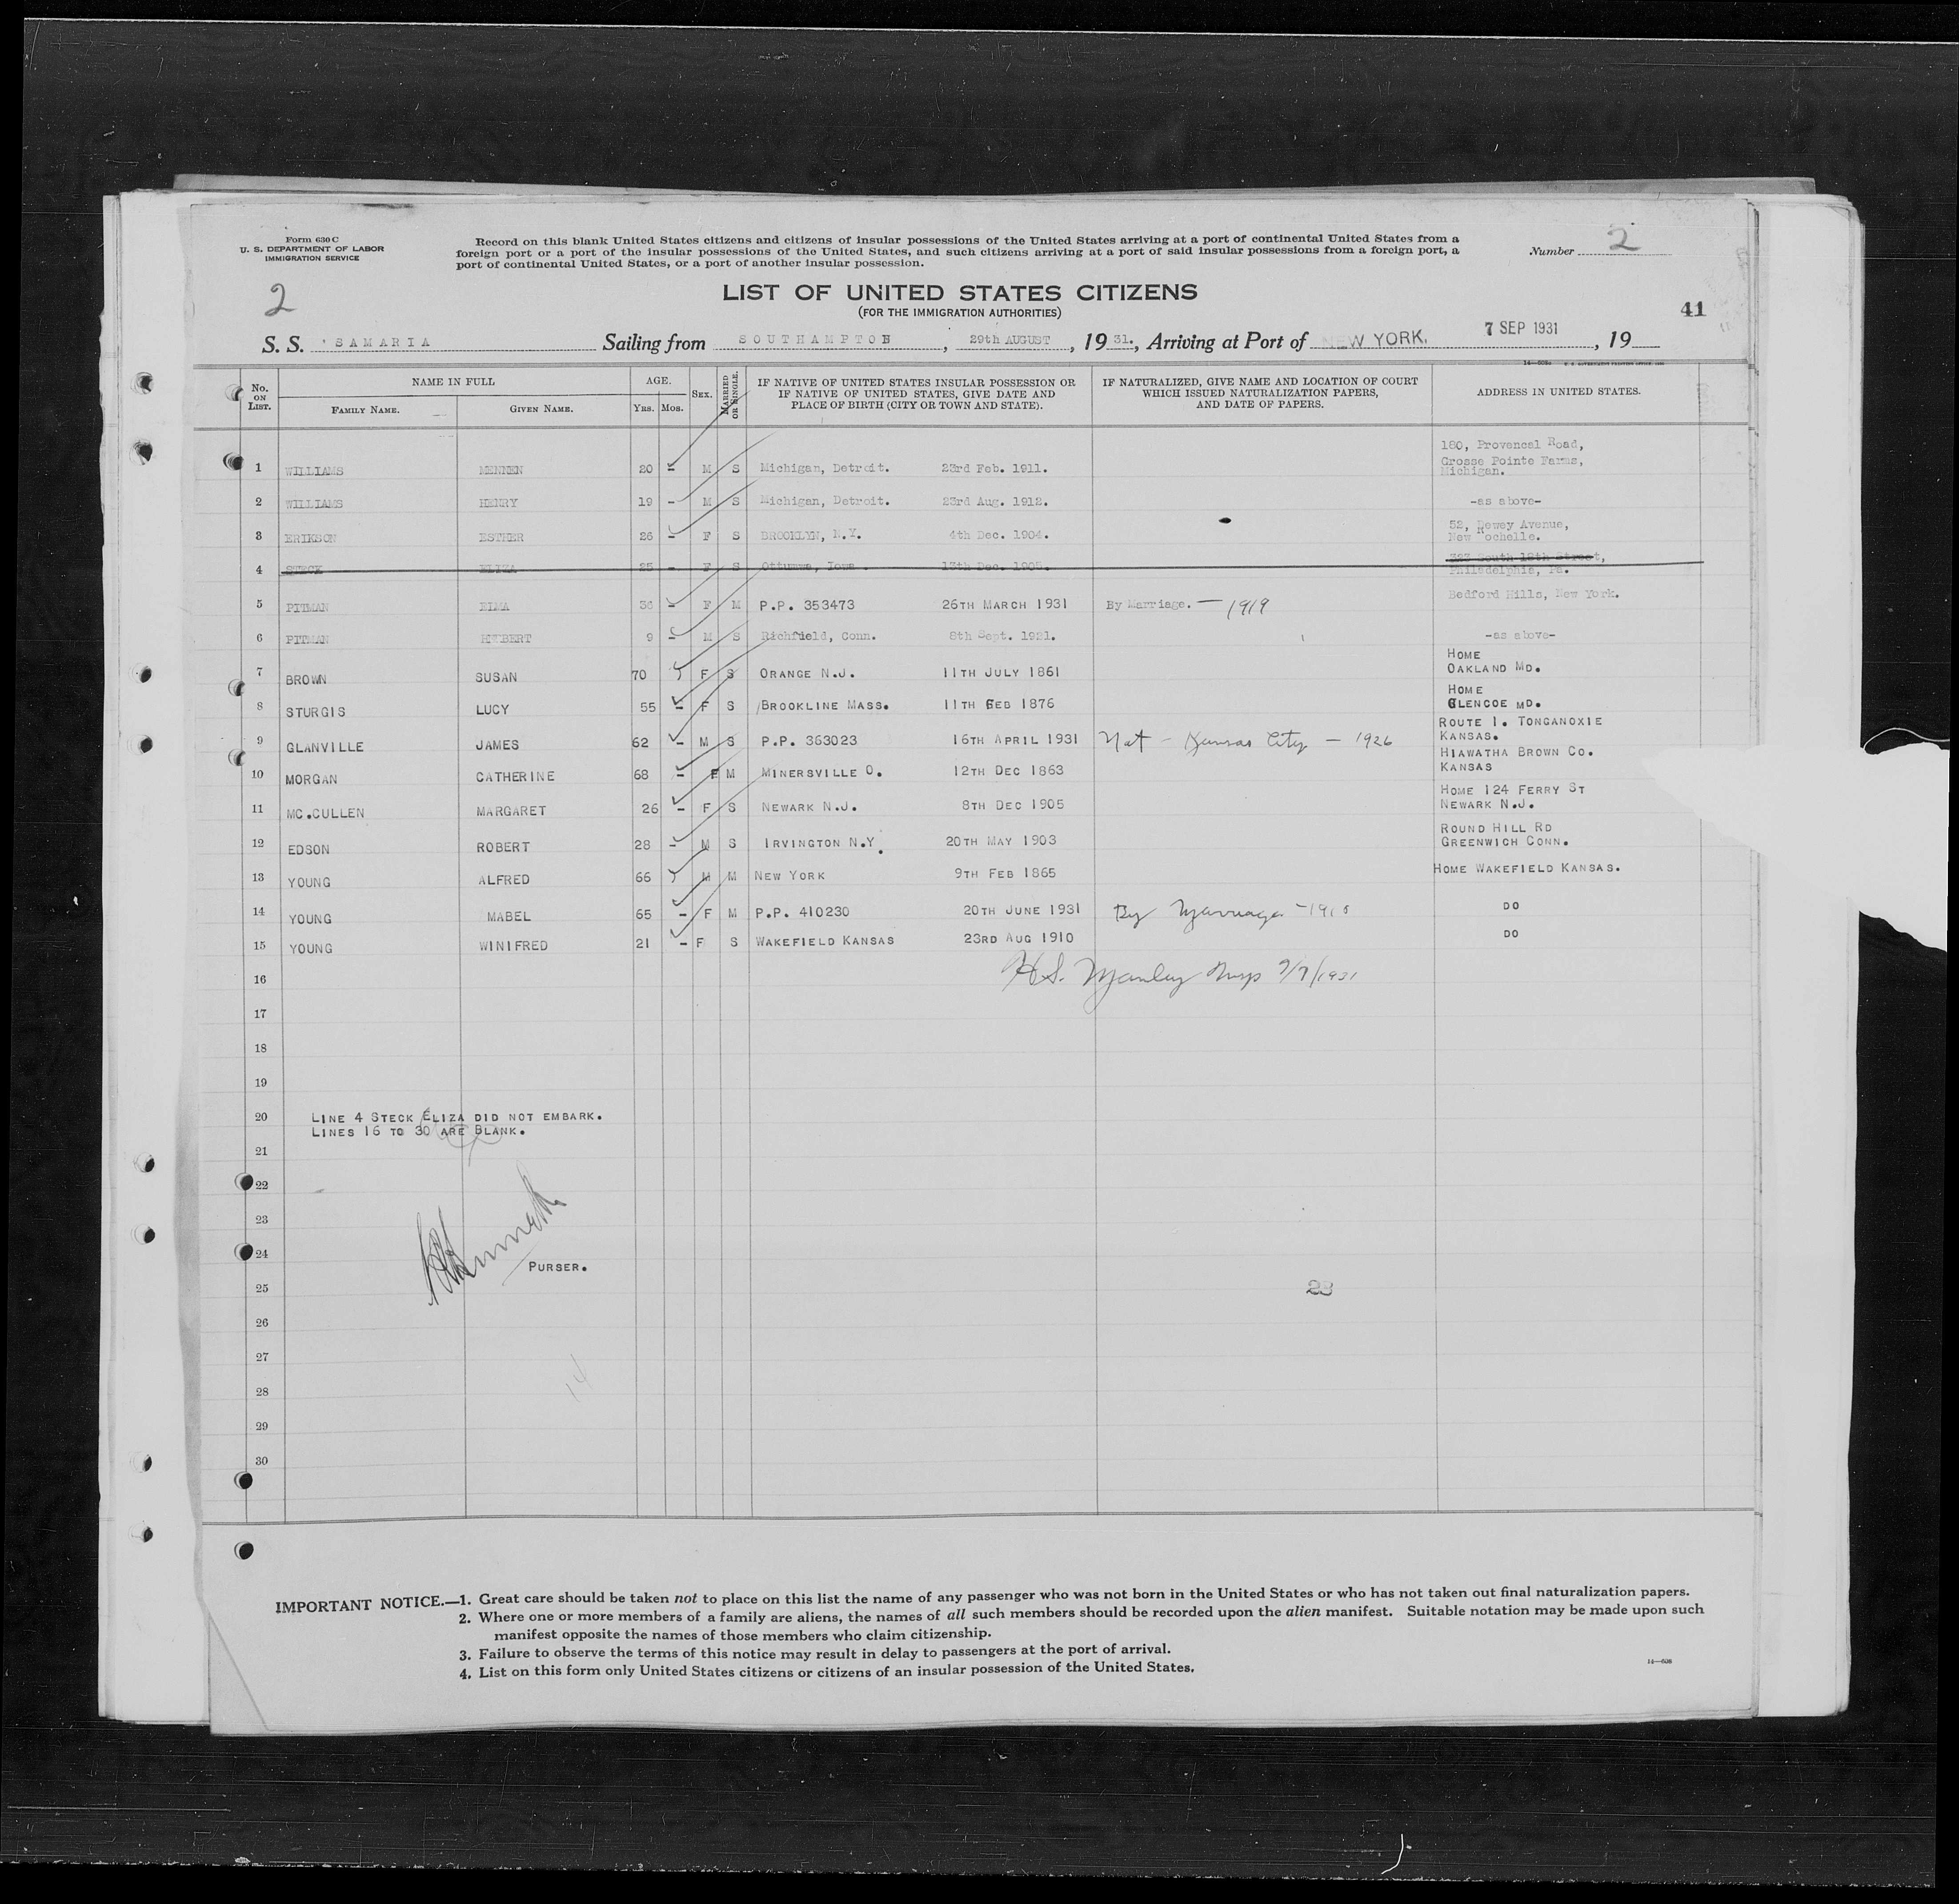 Form 630 C
U. S. DEPARTMENT OF LABOR
IMMIGRATION SERVICE
Record on this blank United States citizens and citizens of insular possessions of the United States arriving at a port of continental United States from a
foreign port or a port of the insular possessions of the United States, and such citizens arriving at a port of said insular possessions from a foreign port, a
port of continental United States, or a port of another insular possession.
Number 2
2
LIST OF UNITED STATES CITIZENS
(FOR THE IMMIGRATION AUTHORITIES)
41
S. S. SAMARIA Sailing from SOUTHAMPTON, 29th AUGUST, 1931., Arriving at Port of NEW YORK. 7 SEP 1931, 19
No. ON LIST. NAME IN FULL AGE. SEX. MARRIED OR SINGLE. IF NATIVE OF UNITED STATES INSULAR POSSESSION OR IF NATIVE OF UNITED STATES, GIVE DATE AND PLACE OF BIRTH (CITY OR TOWN AND STATE). IF NATURALIZED, GIVE NAME AND LOCATION OF COURT WHICH ISSUED NATURALIZATION PAPERS, AND DATE OF PAPERS. ADDRESS IN UNITED STATES.
FAMILY NAME. GIVEN NAME. Yrs. Mos.
1 WILLIAMS MENNEN 20 - M S Michigan, Detroit. 23rd Feb. 1911. 180, Provencal Road, Grosse Pointe Farms, Michigan.
2 WILLIAMS HENRY 19 - M S Michigan, Detroit. 23rd Aug. 1912. -as above-
3 ERIKSON ESTHER 26 - F S BROOKLYN, N.Y. 4th Dec. 1904. 52, Dewey Avenue, New Rochelle.
4 STECK ELIZA 25 - F S Ottumwa, Iowa. 13th Dec. 1905. 327 South 18th Street, Philadelphia, Pa.
5 PITMAN ELMA 36 - F M P.P. 353473 26TH MARCH 1931 By Marriage. — 1919 Bedford Hills, New York.
6 PITMAN HUBERT 9 - M S Richfield, Conn. 8th Sept. 1921. -as above-
7 BROWN SUSAN 70 F S ORANGE N.J. 11TH JULY 1861 HOME OAKLAND MD.
8 STURGIS LUCY 55 - F S BROOKLINE MASS. 11TH FEB 1876 HOME GLENCOE MD.
9 GLANVILLE JAMES 62 - M S P.P. 363023 16TH APRIL 1931 Nat - Kansas City - 1926 ROUTE 1. TONGANOXIE KANSAS.
10 MORGAN CATHERINE 68 - F M MINERSVILLE O. 12TH DEC 1863 HIAWATHA BROWN CO. KANSAS
11 MC.CULLEN MARGARET 26 - F S NEWARK N.J. 8TH DEC 1905 HOME 124 FERRY ST NEWARK N.J.
12 EDSON ROBERT 28 - M S IRVINGTON N.Y. 20TH MAY 1903 ROUND HILL RD GREENWICH CONN.
13 YOUNG ALFRED 66 M M NEW YORK 9TH FEB 1865 HOME WAKEFIELD KANSAS.
14 YOUNG MABEL 65 - F M P.P. 410230 20TH JUNE 1931 By Marriage - DO
15 YOUNG WINIFRED 21 - F S WAKEFIELD KANSAS 23RD AUG 1910 DO
16 H.S. Manley Insp 9/7/1931
17
18
19
20 LINE 4 STECK ELIZA DID NOT EMBARK.
LINES 16 TO 30 ARE BLANK.
21
22
23
24
PURSER.
25 23
26
27
14
28
29
30
IMPORTANT NOTICE.—1. Great care should be taken not to place on this list the name of any passenger who was not born in the United States or who has not taken out final naturalization papers.
2. Where one or more members of a family are aliens, the names of all such members should be recorded upon the alien manifest. Suitable notation may be made upon such
manifest opposite the names of those members who claim citizenship.
3. Failure to observe the terms of this notice may result in delay to passengers at the port of arrival.
4. List on this form only United States citizens or citizens of an insular possession of the United States.
14—608